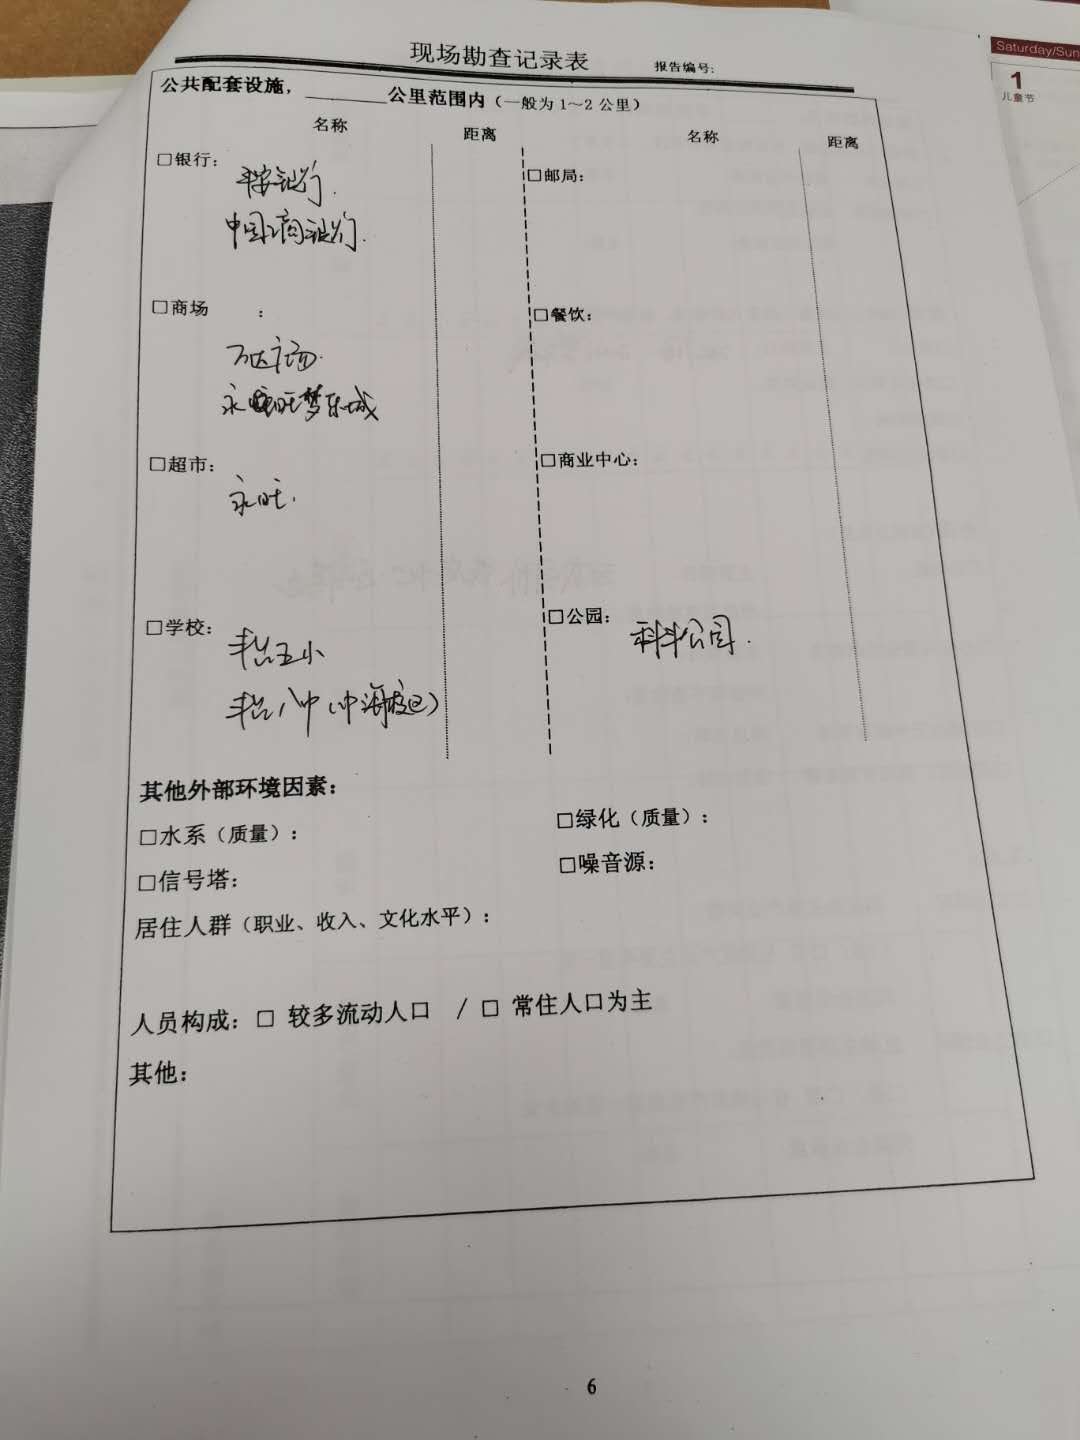 现场勘查记录表
报告编号:
Saturday/Sun
1
儿童节
公共配套设施，______公里范围内（一般为1～2公里）
名称 距离 名称 距离
□银行：
平安银行.
中国工商银行.
□邮局：
□商场 ：
万达广场.
永旺梦乐城
□餐饮：
□超市：
永旺.
□商业中心：
□学校：
丰台五小
丰台八中（中海校区）
□公园：
科丰公园.
其他外部环境因素：
□水系（质量）： □绿化（质量）：
□信号塔： □噪音源：
居住人群（职业、收入、文化水平）：
人员构成：□ 较多流动人口 / □ 常住人口为主
其他：
6